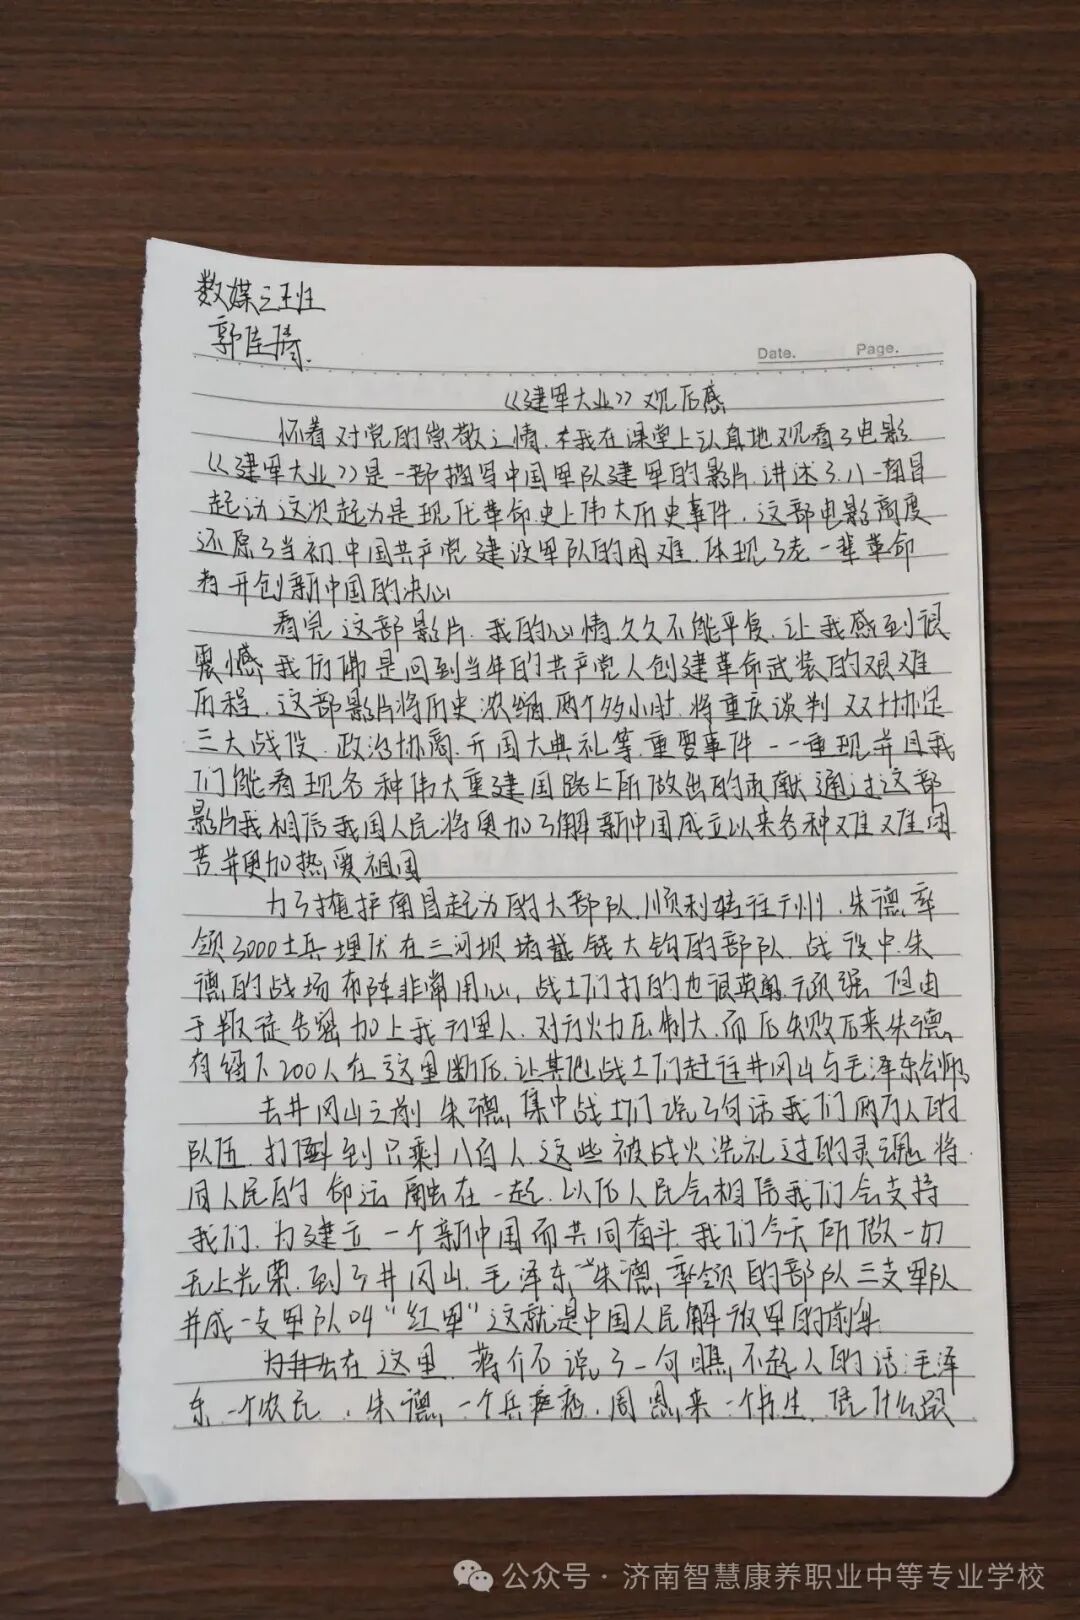 数媒三班
郭佳
Date. Page.
《建军大业》观后感
怀着对党的崇敬之情.我在课堂上认真地观看了电影
《建军大业》是一部描写中国军队建军的影片.讲述了.八一南昌
起义这次起义是现代革命史上伟大历史事件.这部电影高度
还原了当初.中国共产党建设军队的困难.体现了老一辈革命
者开创新中国的决心
看完这部影片.我的心情久久不能平复.让我感到很
震憾我仿佛是回到当年的共产党人创建革命武装的艰难
历程.这部影片将历史浓缩.两个多小时.将重庆谈判双十协定
三大战役.政治协商.开国大典礼等.重要事件一一重现并且我
们能看现各种伟大重建国路上所做出的贡献通过这部
影片我相信我国人民将更加了解新中国成立以来各种难难困
苦并更加热爱祖国
为了掩护南昌起义的大部队.顺利转往广州.朱德率
领3000士兵埋伏在三河坝堵截钱大钧的部队.战役中.朱
德的战场布阵非常用心,战士们打的也很英勇顽强 但由
于叛徒告密加上我方军人.对方火力压制大.而后失败后来朱德
有 200人在这里断后.让其他战士们赶往井冈山与毛泽东会师
去井冈山之前 朱德集中战士们说了句话我们两万人的
队伍.打到只剩八百人.这些被战火洗礼过的灵魂将
同人民的命运融在一起.以后人民会相信我们会支持
我们.为建立一个新中国而共同奋斗.我们今天所做一切
无上光荣.到了井冈山.毛泽东、朱德率领的部队三支军队
并成一支军队叫“红军”这就是中国人民解放军的前身.
在这里.蒋介石说了一句瞧不起人的话:毛泽
东一个农民.朱德一个兵痞.周恩来一个书生.凭什么跟
公众号·济南智慧康养职业中等专业学校